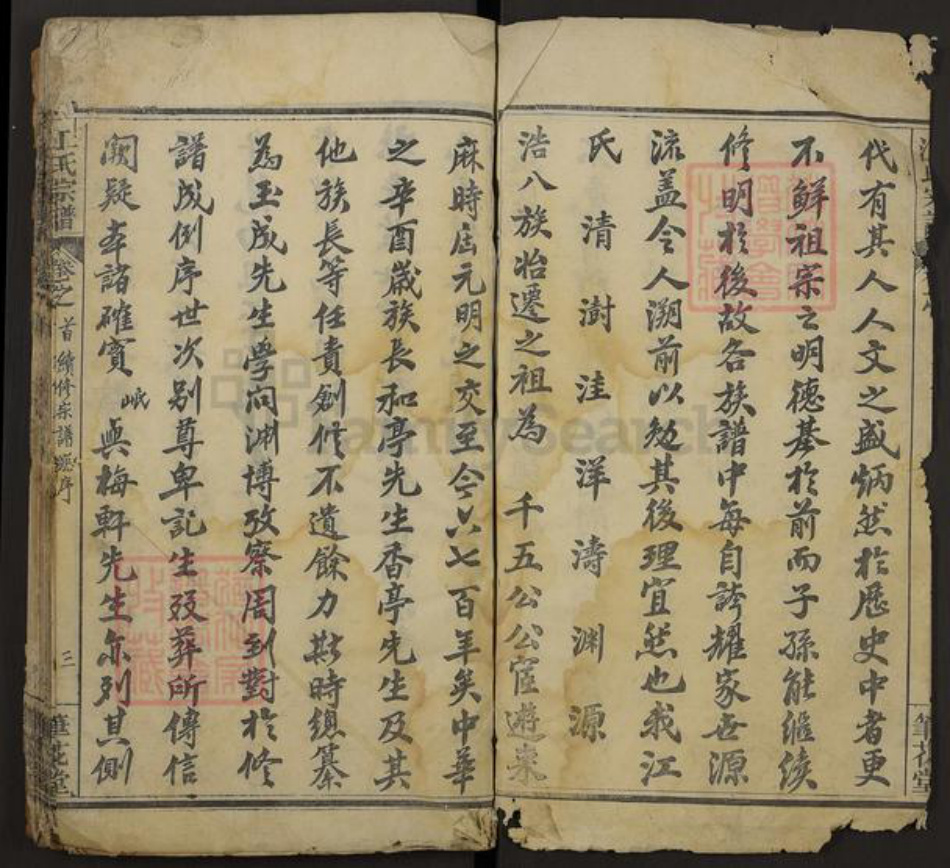 代有其人人文之盛炳然於歷史中者更
不鮮祖宗之明德基於前而子孫能繼續
修明於後故各族譜中每自誇耀家世源
流盖令人溯前以勉其後理宜然也我江
氏清澍洼洋濤渊源
浩八族始遷之祖為千五公公宦遊來
麻時屆元明之交至今六七百年矣中華
之辛酉歲族長和亭先生香亭先生及其
他族長等任責創修不遺餘力斯時總纂
為玉成先生學问渊博攷察周到對於修
譜成例序世次别尊卑記生殁葬所傳信
闕疑牽諸確實岷與梅軒先生亦列其側
江氏宗譜
卷之首 續修宗譜總序
三
筆花堂
筆花堂
FamilySearch